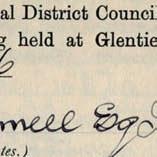 al District Council
g held at Glentie
6
Esq J
tes.)